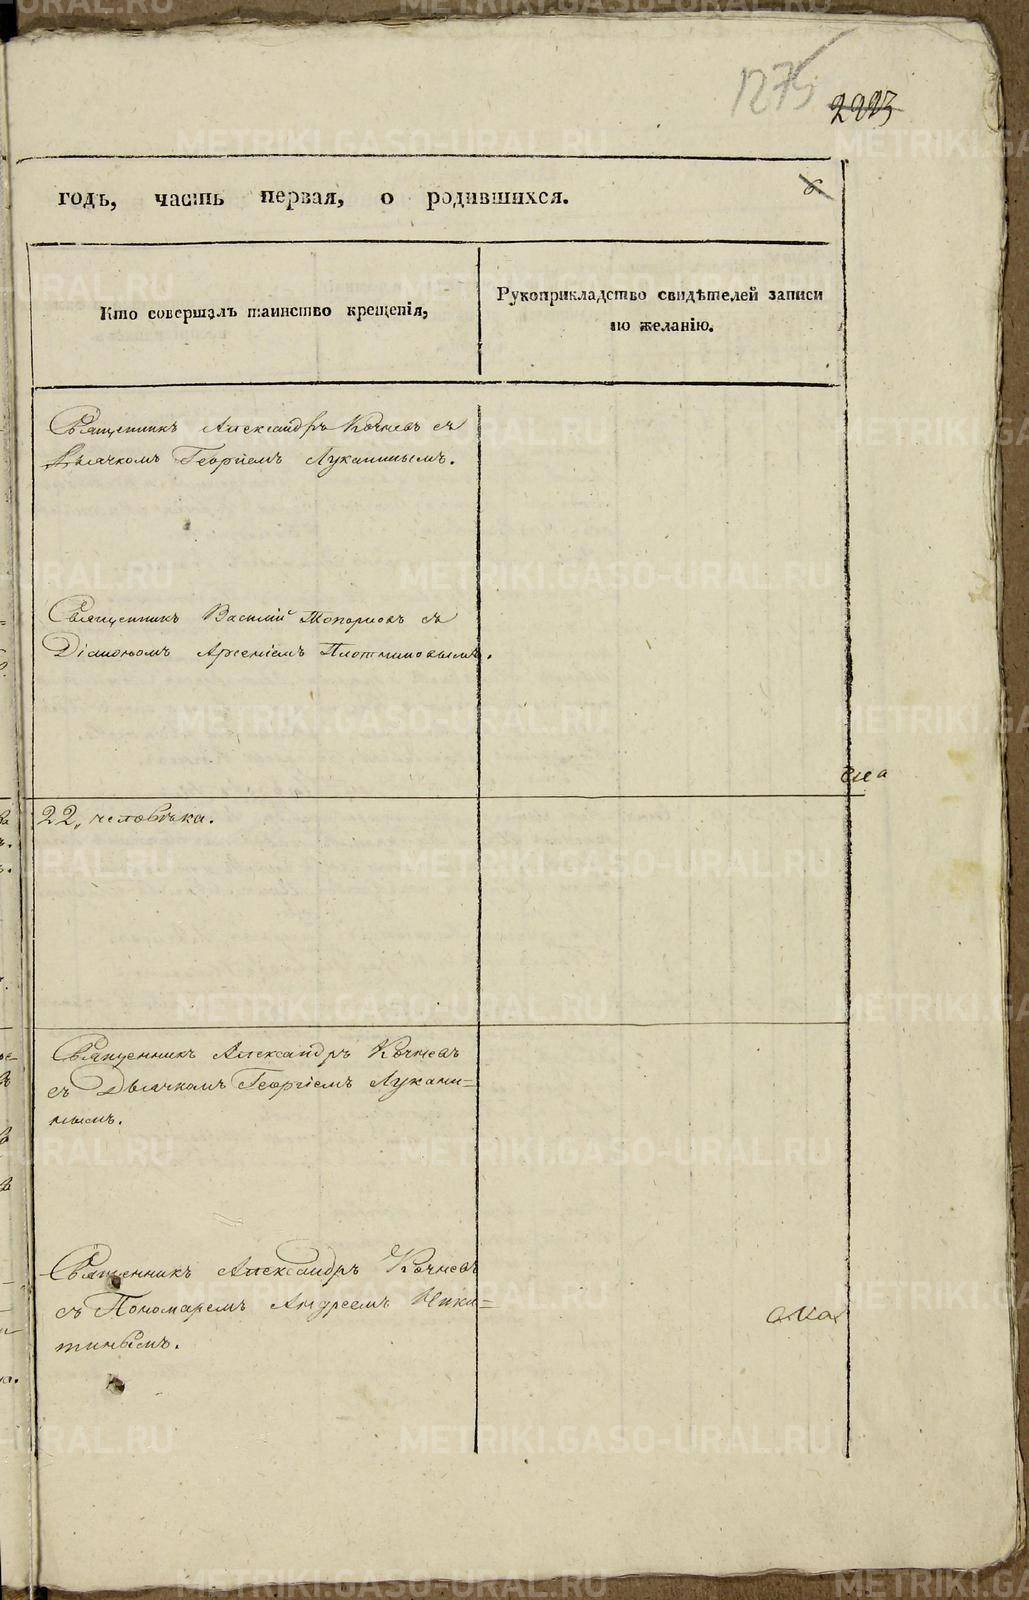 1275
2223
годъ, часть первая, о родившихся.
6.
Кто совершалъ таинство крещенія,
Рукоприкладство свидѣтелей записи
по желанію.
Священникъ Александръ Кочневъ съ
Дьячкомъ Георгіемъ Луканинымъ.
Священникъ Василій Топорковъ съ
Діакономъ Арсеніемъ Плотниковымъ.
22, человѣка.
Священникъ Александръ Кочневъ
съ Дьячкомъ Георгіемъ Лукани=
нымъ.
Священникъ Александръ Кочневъ
съ Пономаремъ Андреемъ Ники=
тинымъ.
METRIKI.GASO-URAL.RU